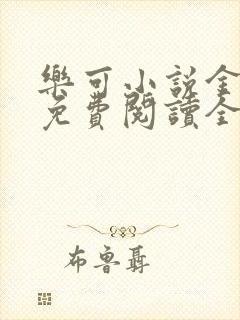 樂可小說全
免費閱讀全
布魯聶